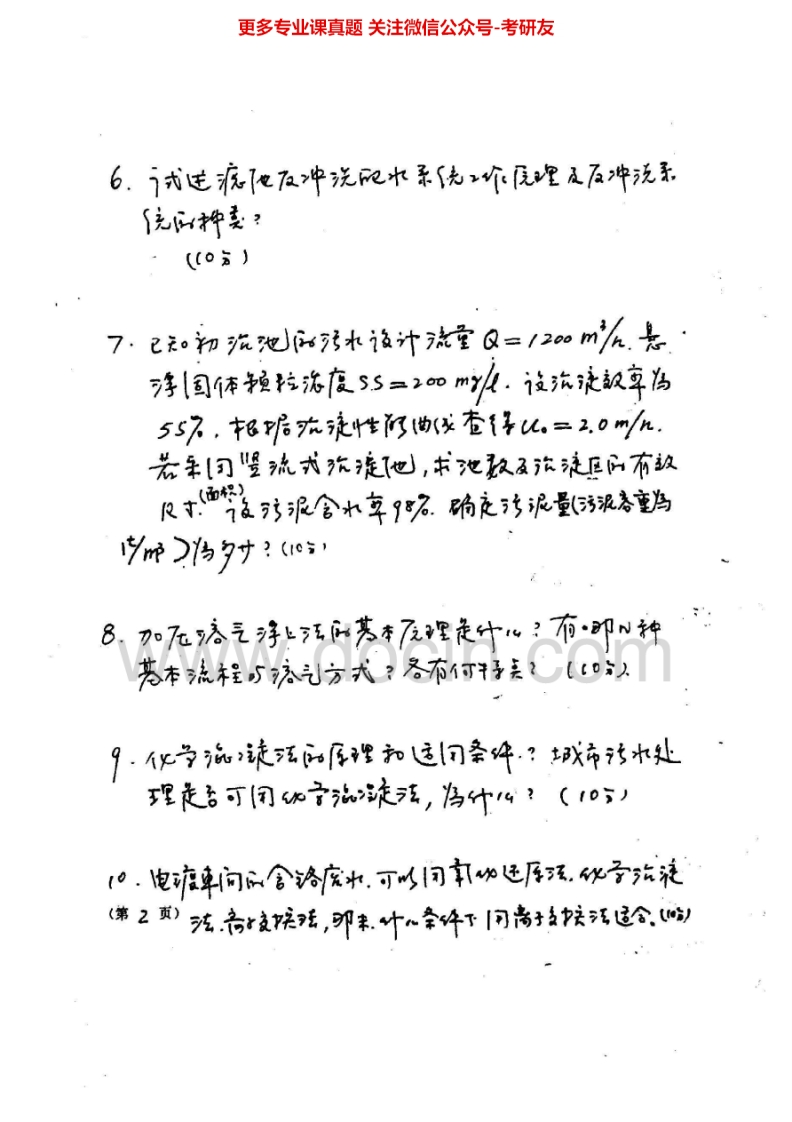 更多专业课真题 关注微信公众号-考研友
6. 试述滤池反冲洗配水系统工作原理及反冲洗系
统的种类?
(10分)
7. 已知初沉池的污水设计流量 Q=1200 m³/h. 悬
浮固体颗粒浓度SS=200 mg/l. 设沉淀效率为
55%, 根据沉淀性能曲线查得 u₀=2.0 m/h.
若采用竖流式沉淀池, 求池数及沉淀区的有效
尺寸.(面积) 设污泥含水率98%. 确定污泥量(污泥容重为
1t/m³)为多少?(10分)
8. 加压溶气浮上法的基本原理是什么? 有哪几种
基本流程与溶气方式? 各有何特点? (10分).
www.docin.com
9. 化学混凝法的原理和适用条件.? 城市污水处
理是否可用化学混凝法, 为什么? (10分)
10. 电镀车间的含铬废水. 可以用氧化还原法. 化学沉淀
(第 2 页) 法. 离子交换法, 那末. 什么条件下用离子交换法适合.(10分)